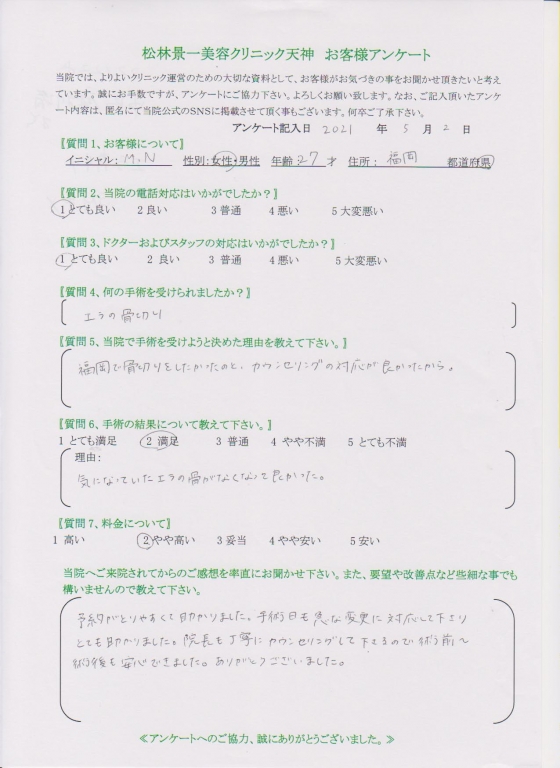 松林景一美容クリニック天神 お客様アンケート
当院では、よりよいクリニック運営のための大切な資料として、お客様がお気づきの事をお聞かせ頂きたいと考え
ています。誠にお手数ですが、アンケートにご協力下さい。よろしくお願い致します。なお、ご記入頂いたアンケ
ート内容は、匿名にて当院公式のSNSに掲載させて頂く事もございます。何卒ご了承下さい。
アンケート記入日 2021 年 5 月 2 日
〖質問 1、お客様について〗
イニシャル: M.N 性別:女性・男性 年齢 27 才 住所: 福岡 都道府県
〖質問 2、当院の電話対応はいかがでしたか?〗
1 とても良い 2 良い 3 普通 4 悪い 5 大変悪い
〖質問 3、ドクターおよびスタッフの対応はいかがでしたか?〗
1 とても良い 2 良い 3 普通 4 悪い 5 大変悪い
〖質問 4、何の手術を受けられましたか?〗
エラの骨切り
〖質問 5、当院で手術を受けようと決めた理由を教えて下さい。〗
福岡で骨切りをしたかったのと、カウンセリングの対応が良かったから。
〖質問 6、手術の結果について教えて下さい。〗
1 とても満足 2 満足 3 普通 4 やや不満 5 とても不満
理由:
気になっていたエラの骨がなくなって良かった。
〖質問 7、料金について〗
1 高い 2 やや高い 3 妥当 4 やや安い 5 安い
当院へご来院されてからのご感想を率直にお聞かせ下さい。また、要望や改善点など些細な事でも
構いませんので教えて下さい。
予約がとりやすくて助かりました。手術日も急な変更に対応して下さり
とても助かりました。院長も丁寧にカウンセリングして下さるので術前〜
術後も安心できました。ありがとうございました。
≪アンケートへのご協力、誠にありがとうございました。≫